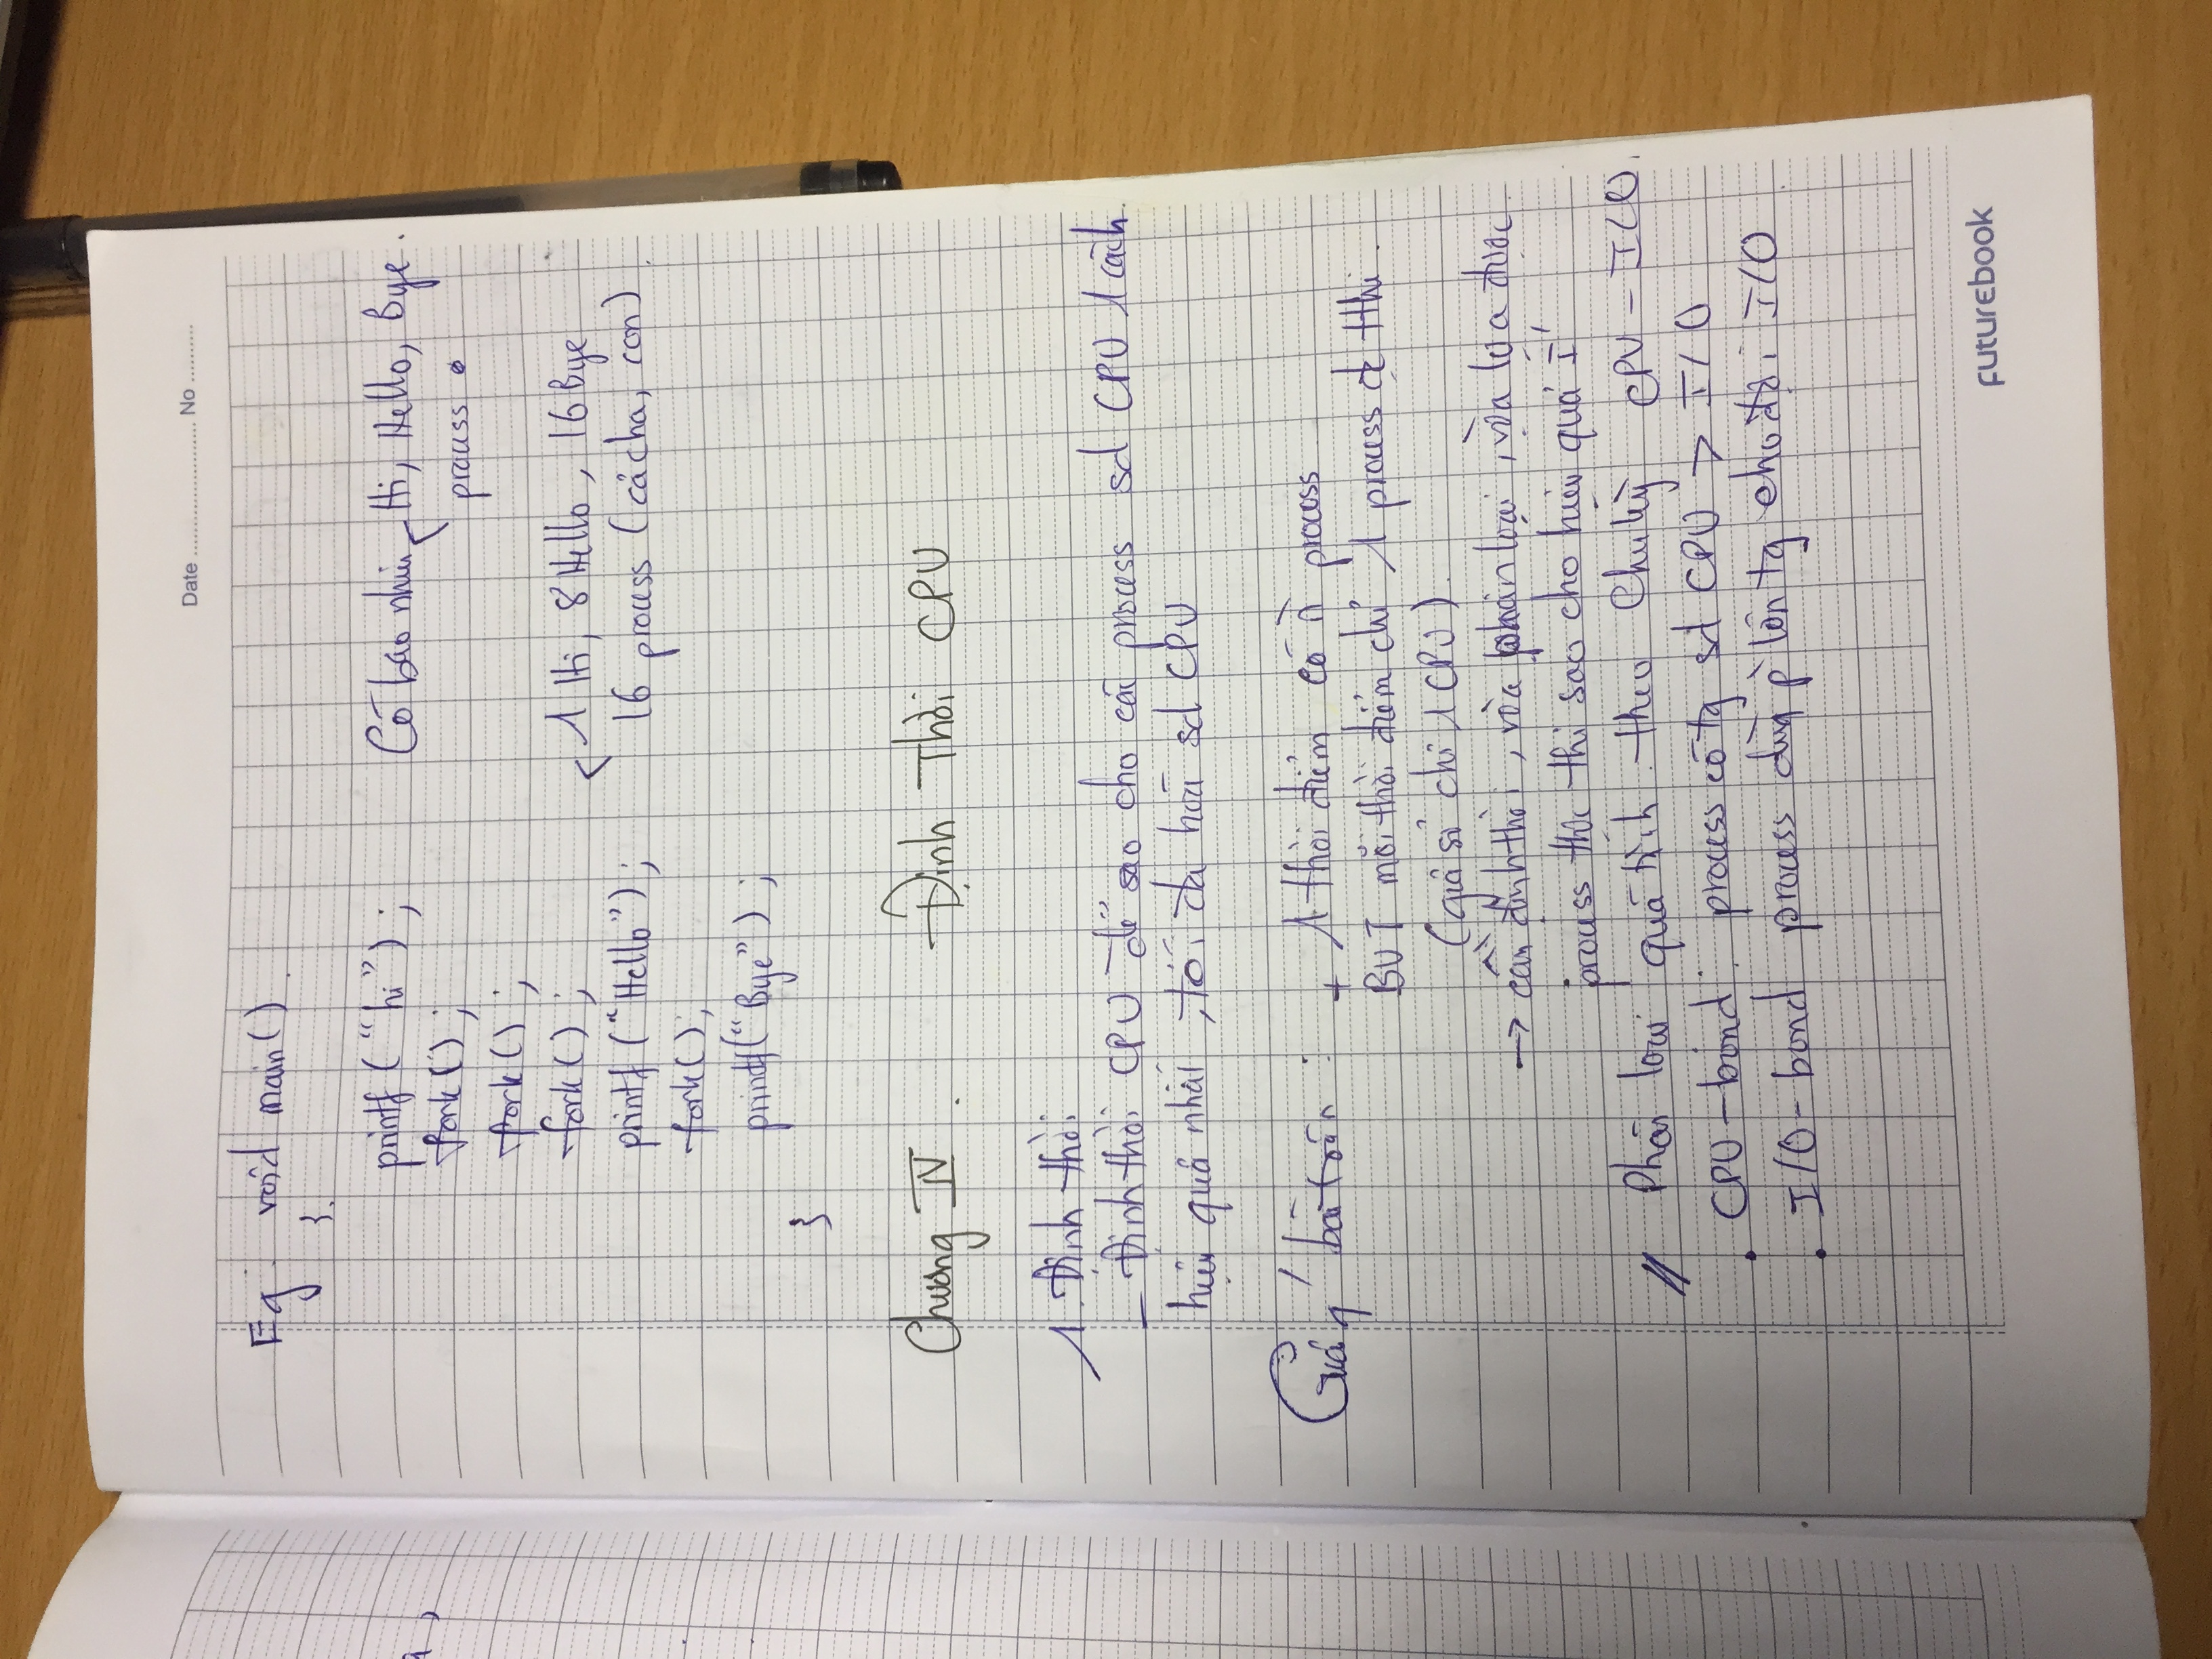 Date ........................ No ..........
Eg void main()
}.
printf ("hi");
Có bao nhiêu Hi, Hello, Bye.
fork();
process
fork();
fork();
1 Hi, 8 Hello, 16 Bye
printf ("Hello");
16 process (cả cha, con)
fork();
printf("Bye");
}
Chương IV. Định Thời CPU
1. Định thời
- Định thời CPU để sao cho các process sd CPU 1 cách
hiệu quả nhất, tối đa hoá sd CPU
bài toán: + 1 thời điểm có n process
BUT mỗi thời điểm chỉ 1 process đc tthi.
(giả sử chỉ 1 CPU)
→ cần định thời, vừa phân loại, vừa lựa được
process thực thi sao cho hiệu quả I'
Phân loại quá trình theo chu kỳ CPU - I/O.
. CPU-bond: process có tg sd CPU > I/O
. I/O-bond process dùng p lớn tg chờ đợi I/O
FUTUREBOOK